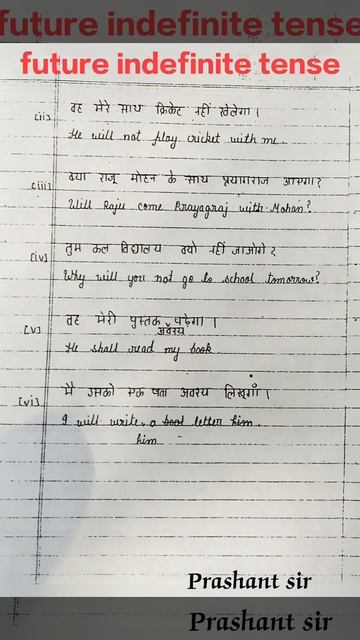 future indefinite tense
future indefinite tense
(ii) वह मेरे साथ क्रिकेट नहीं खेलेगा।
He will not play cricket with me.
(iii) क्या राजू मोहन के साथ प्रयागराज आएगा?
Will Raju come Prayagraj with Mohan?
(iv) तुम कल विद्यालय क्यो नहीं जाओगे?
Why will you not go to school tomorrow?
(v) वह मेरी पुस्तक पढ़ेगा।
अवश्य
He shall read my book
(vi) मै उसको एक पत्र अवश्य लिखूगाँ।
I will write, a letter him.
him
Prashant sir
Prashant sir